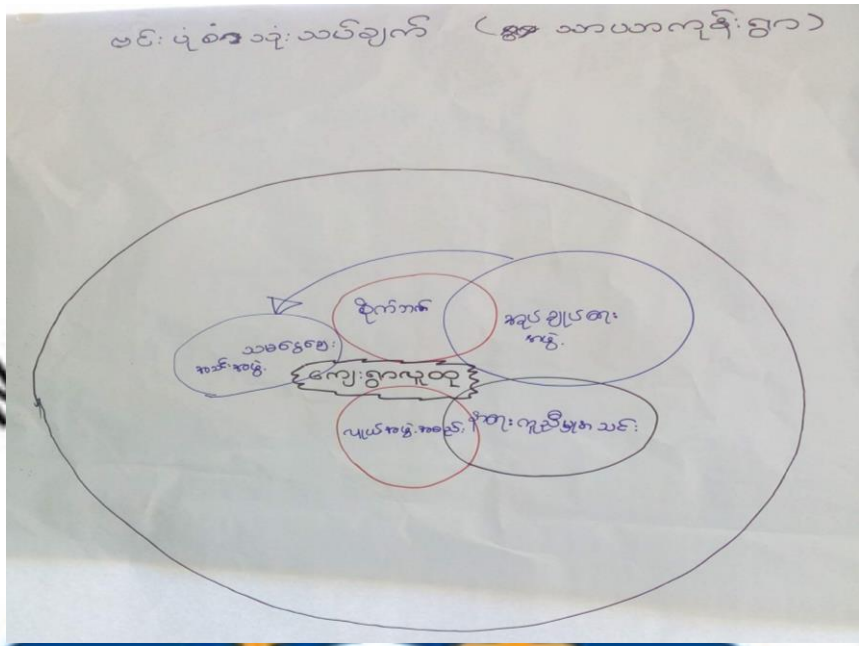 ဗင်းပုံစံသုံးသပ်ချက် (သာယာကုန်းရွာ)
စိုက်ဘဏ်
အုပ်ချုပ်ရေး
အဖွဲ့
သမဝါယမ
အသင်းအဖွဲ့
ကျေးရွာလူထု
လူငယ်အဖွဲ့အစည်း
နာရေးကူညီမှုအသင်း